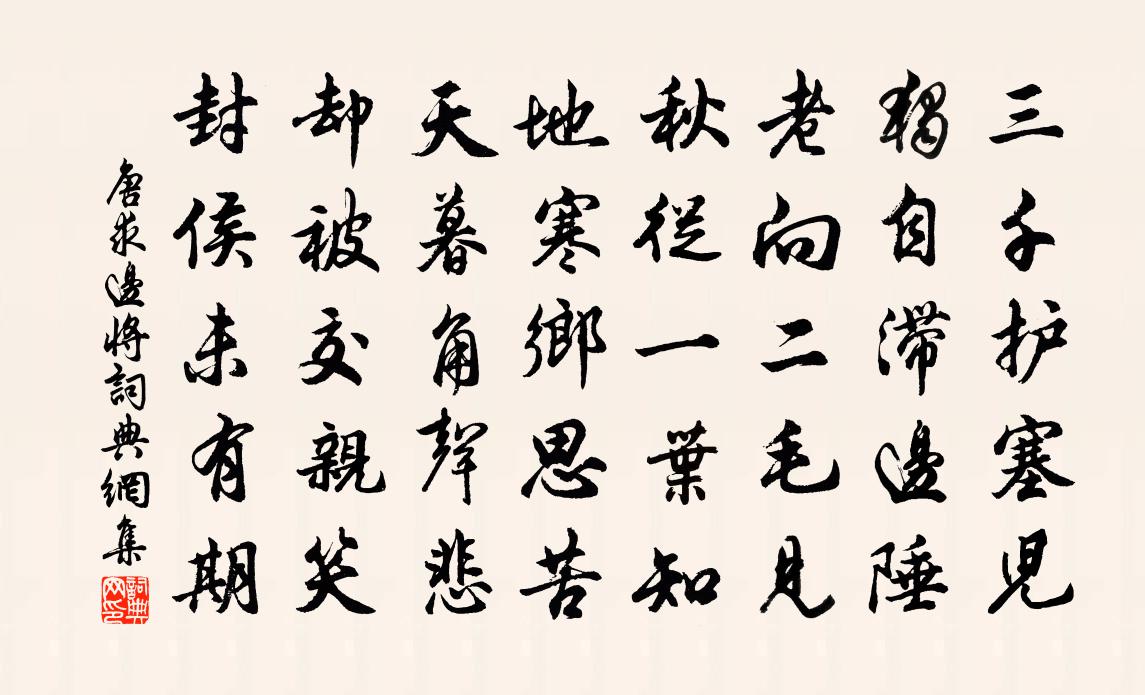 三千护塞兒
獨自滯邊陲
老向二毛見
秋從一葉知
地寒鄉思苦
天暮角聲悲
却被交親笑
封侯未有期
唐求邊將詞典網集
詞典网印